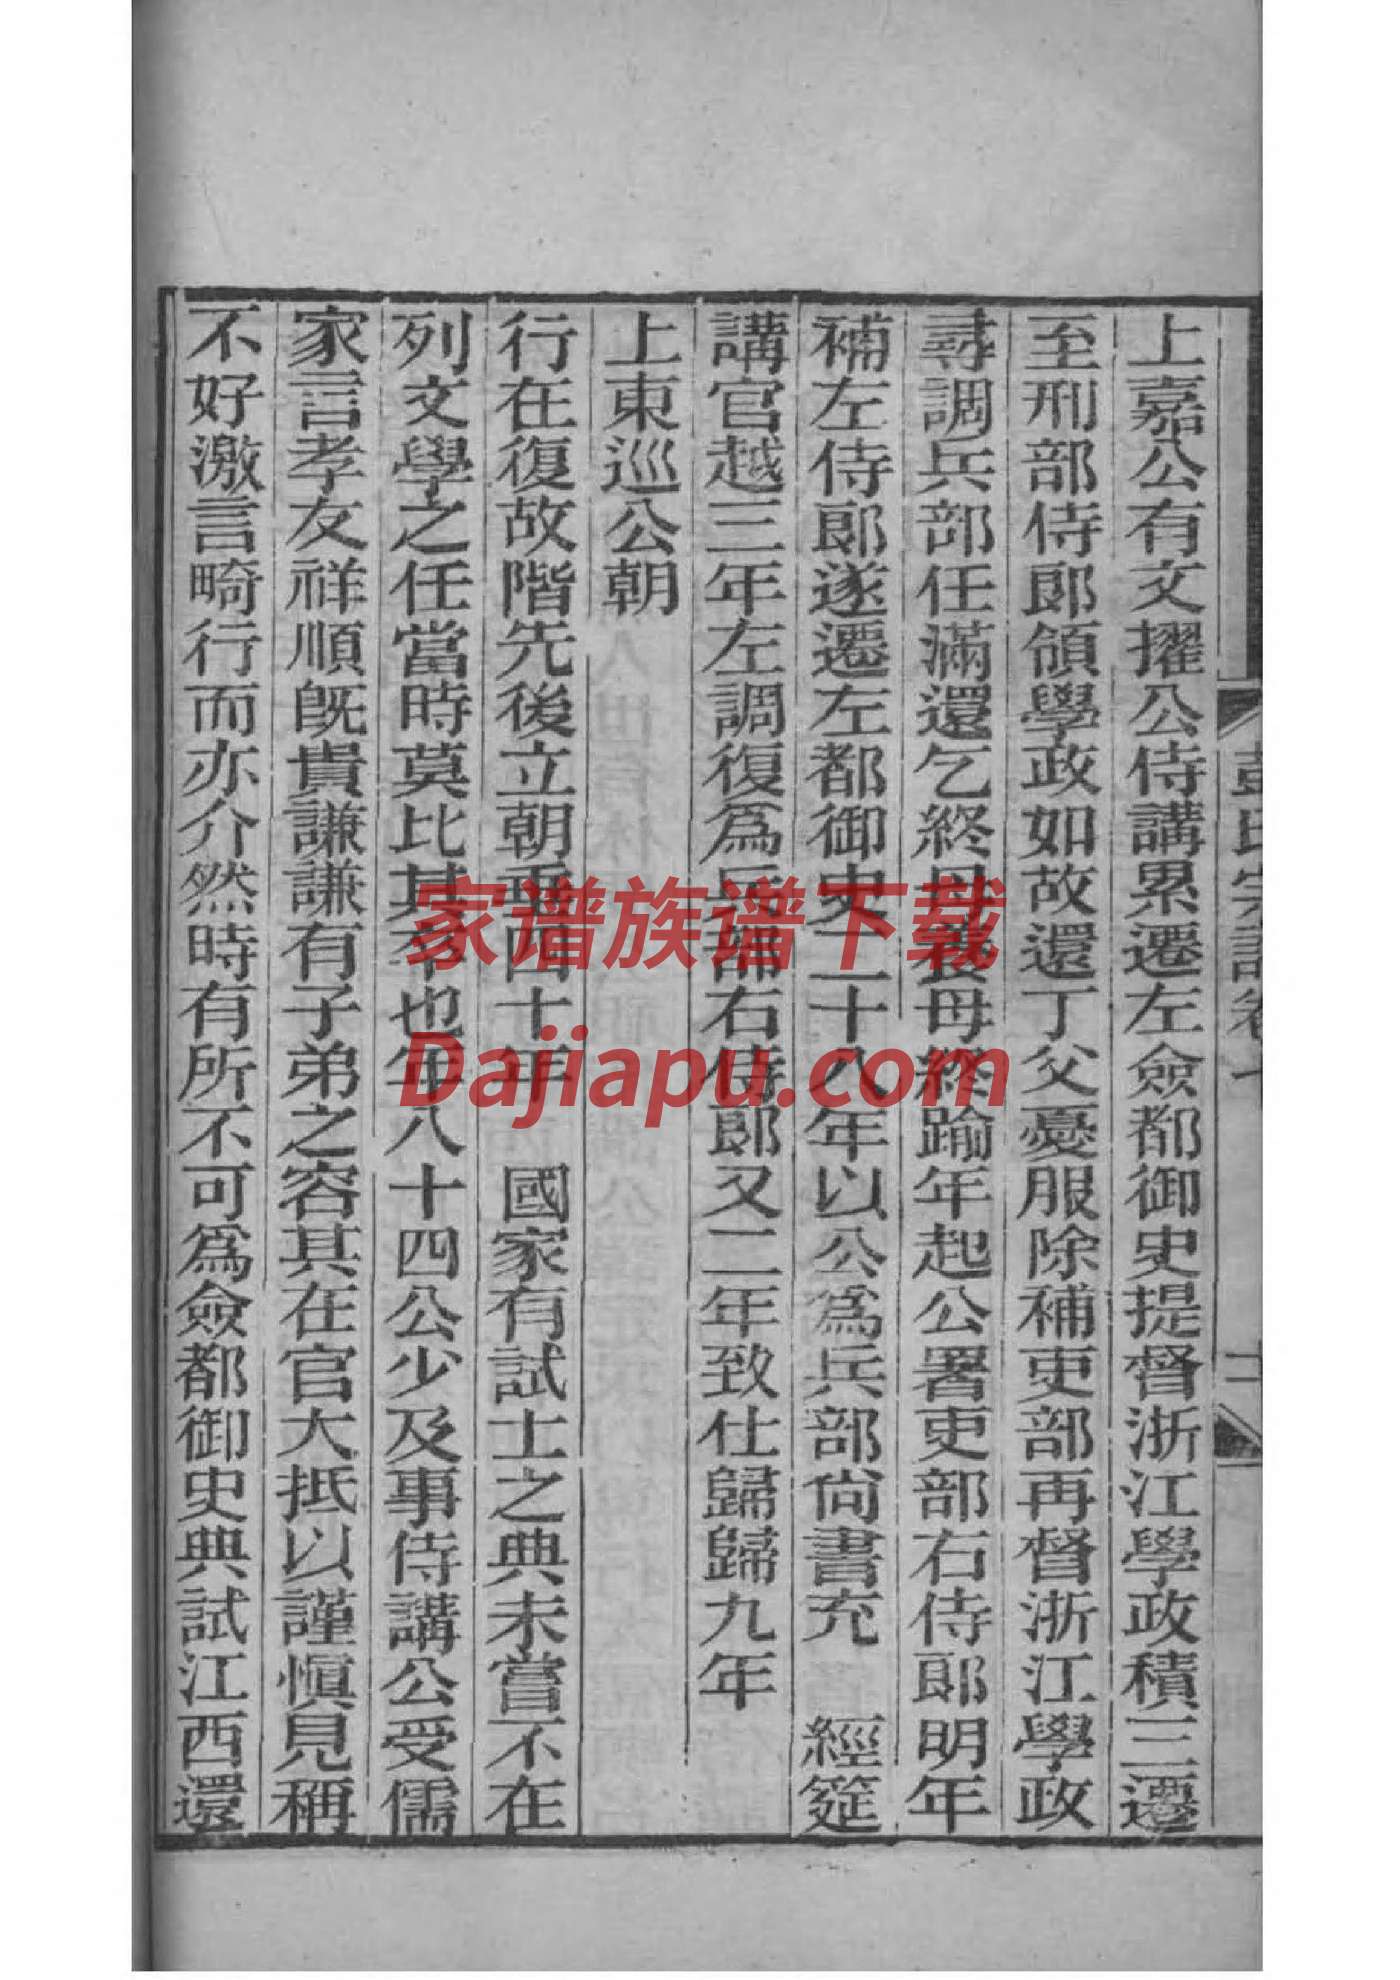 上嘉公有文擢公侍講累遷左僉都御史提督浙江學政積三遷
至刑部侍郎領學政如故還丁父憂服除補吏部再督浙江學政
尋調兵部任滿還乞終母養母終踰年起公署吏部右侍郎明年
補左侍郎遂遷左都御史二十八年以公爲兵部尙書充 經筵
講官越三年左調復爲兵部右侍郎又二年致仕歸歸九年
上東巡公朝
行在復故階先後立朝垂四十年 國家有試士之典未嘗不在
列文學之任當時莫比其卒也年八十四公少及事侍講公受儒
家言孝友祥順旣貴謙謙有子弟之容其在官大抵以謹愼見稱
不好激言畸行而亦介然時有所不可爲僉都御史典試江西還
彭氏宗譜卷七
十
家谱族谱下载
Dajiapu.com